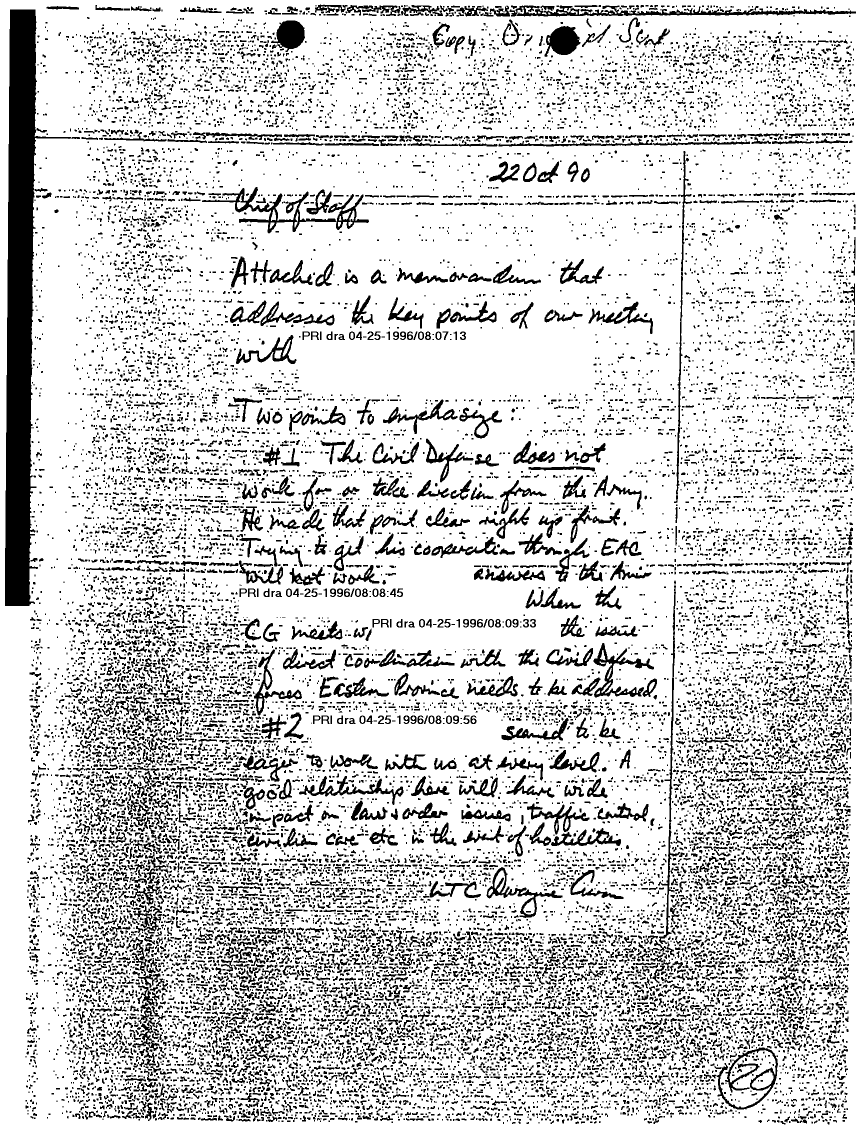 Copy Original Sent
22 Oct 90
Chief of Staff
Attached is a memorandum that
addresses the key points of our meeting
with PRI dra 04-25-1996/08:07:13
Two points to emphasize:
#1 The Civil Defense does not
work for or take direction from the Army.
He made that point clear right up front.
Trying to get his cooperation through EAC
will not work. answers to the Amir
PRI dra 04-25-1996/08:08:45 When the
CG meets w/ PRI dra 04-25-1996/08:09:33 the issue
of direct coordination with the Civil Defense
forces Eastern Province needs to be addressed.
#2 PRI dra 04-25-1996/08:09:56 seemed to be
eager to work with us at every level. A
good relationship here will have wide
impact on law & order issues, traffic control,
civilian care etc in the event of hostilities.
LTC Dwayne
20